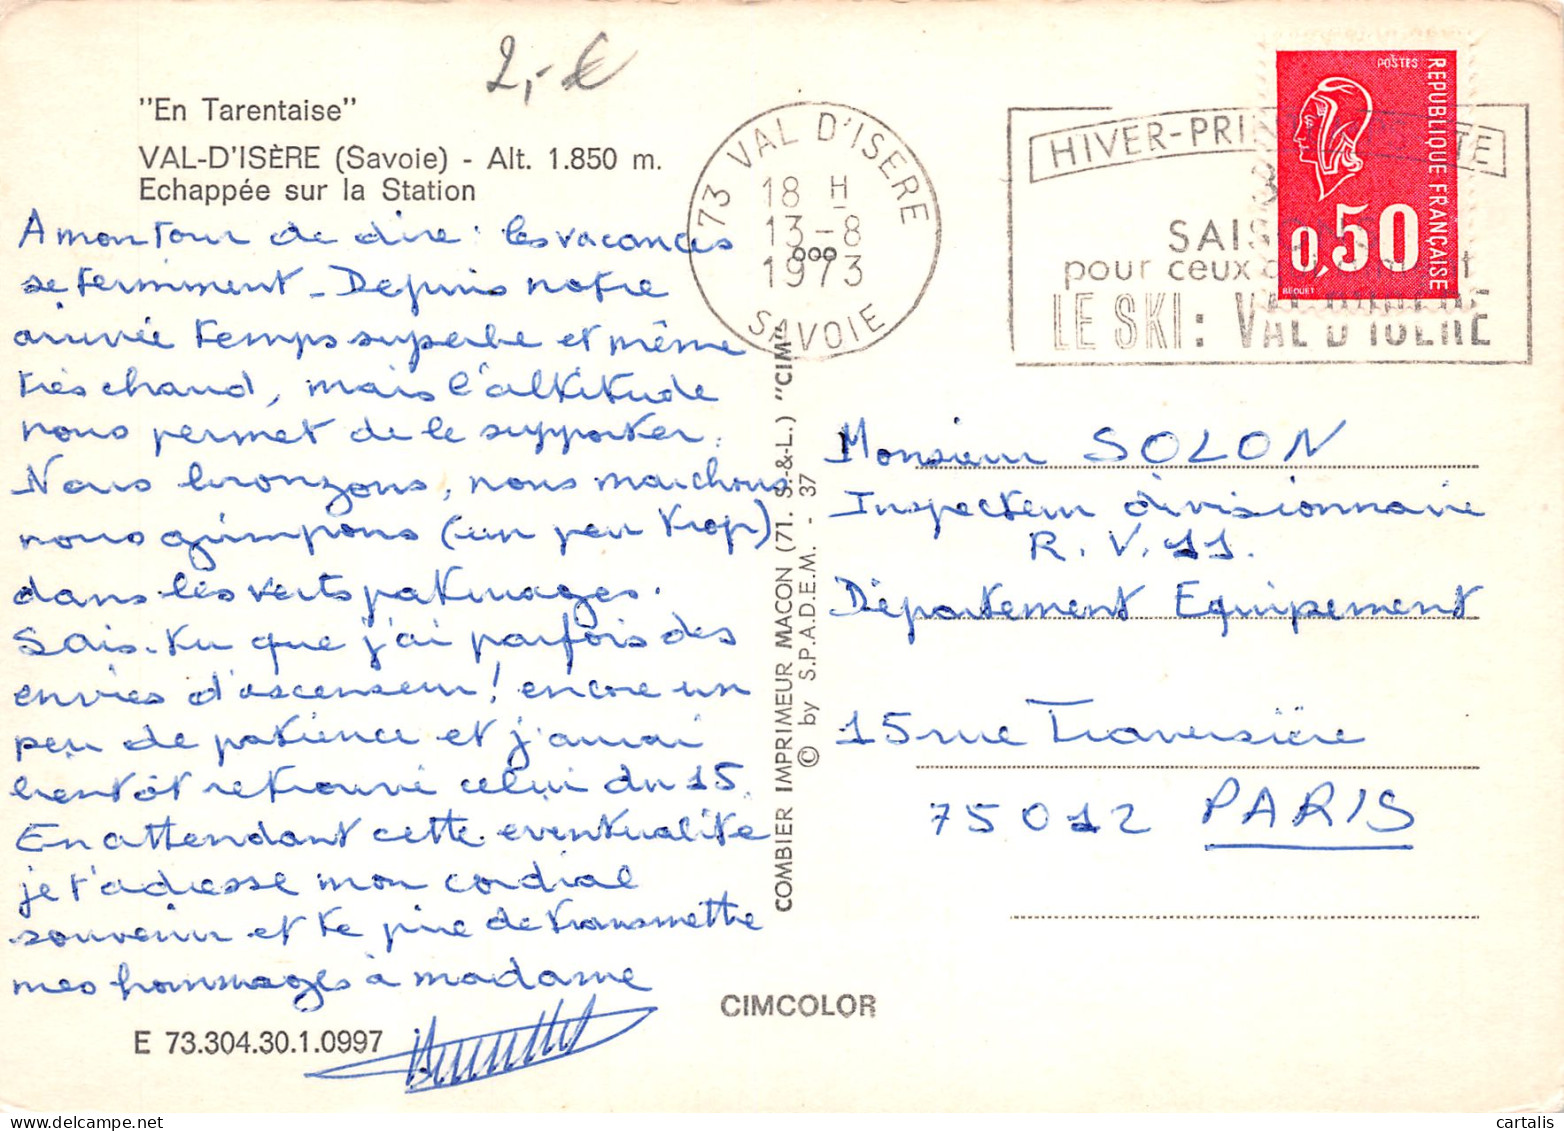 2,- €
"En Tarentaise"
VAL-D'ISÈRE (Savoie) - Alt. 1.850 m.
Echappée sur la Station
A mon tour de dire : les vacances
se terminent - Depuis notre
arrivée temps superbe et même
très chaud, mais l'altitude
nous permet de le supporter.
Nous bronzons, nous marchons
nous grimpons (un peu trop)
dans les verts paturages.
Sais-tu que j'ai parfois des
envies d'ascenseur ! encore un
peu de patience et j'aurai
bientôt retrouvé celui du 15.
En attendant cette eventualité
je t'adresse mon cordial
souvenir et te prie de transmettre
mes hommages à madame
E 73.304.30.1.0997
CIMCOLOR
COMBIER IMPRIMEUR MACON (71. S.-&-L.) "CIM"
© by S.P.A.D.E.M. - 37
73 VAL D'ISERE
18 H
13-8
1973
SAVOIE
HIVER-PRI TE
SAIS
pour ceux
LE SKI : VAL D'ISERE
POSTES
REPUBLIQUE FRANÇAISE
0,50
BEQUET
Monsieur SOLON
Inspecteur divisionnaire
R.V.11.
Département Equipement
15 rue Traversière
75012 PARIS
cartalis
delcampe.net